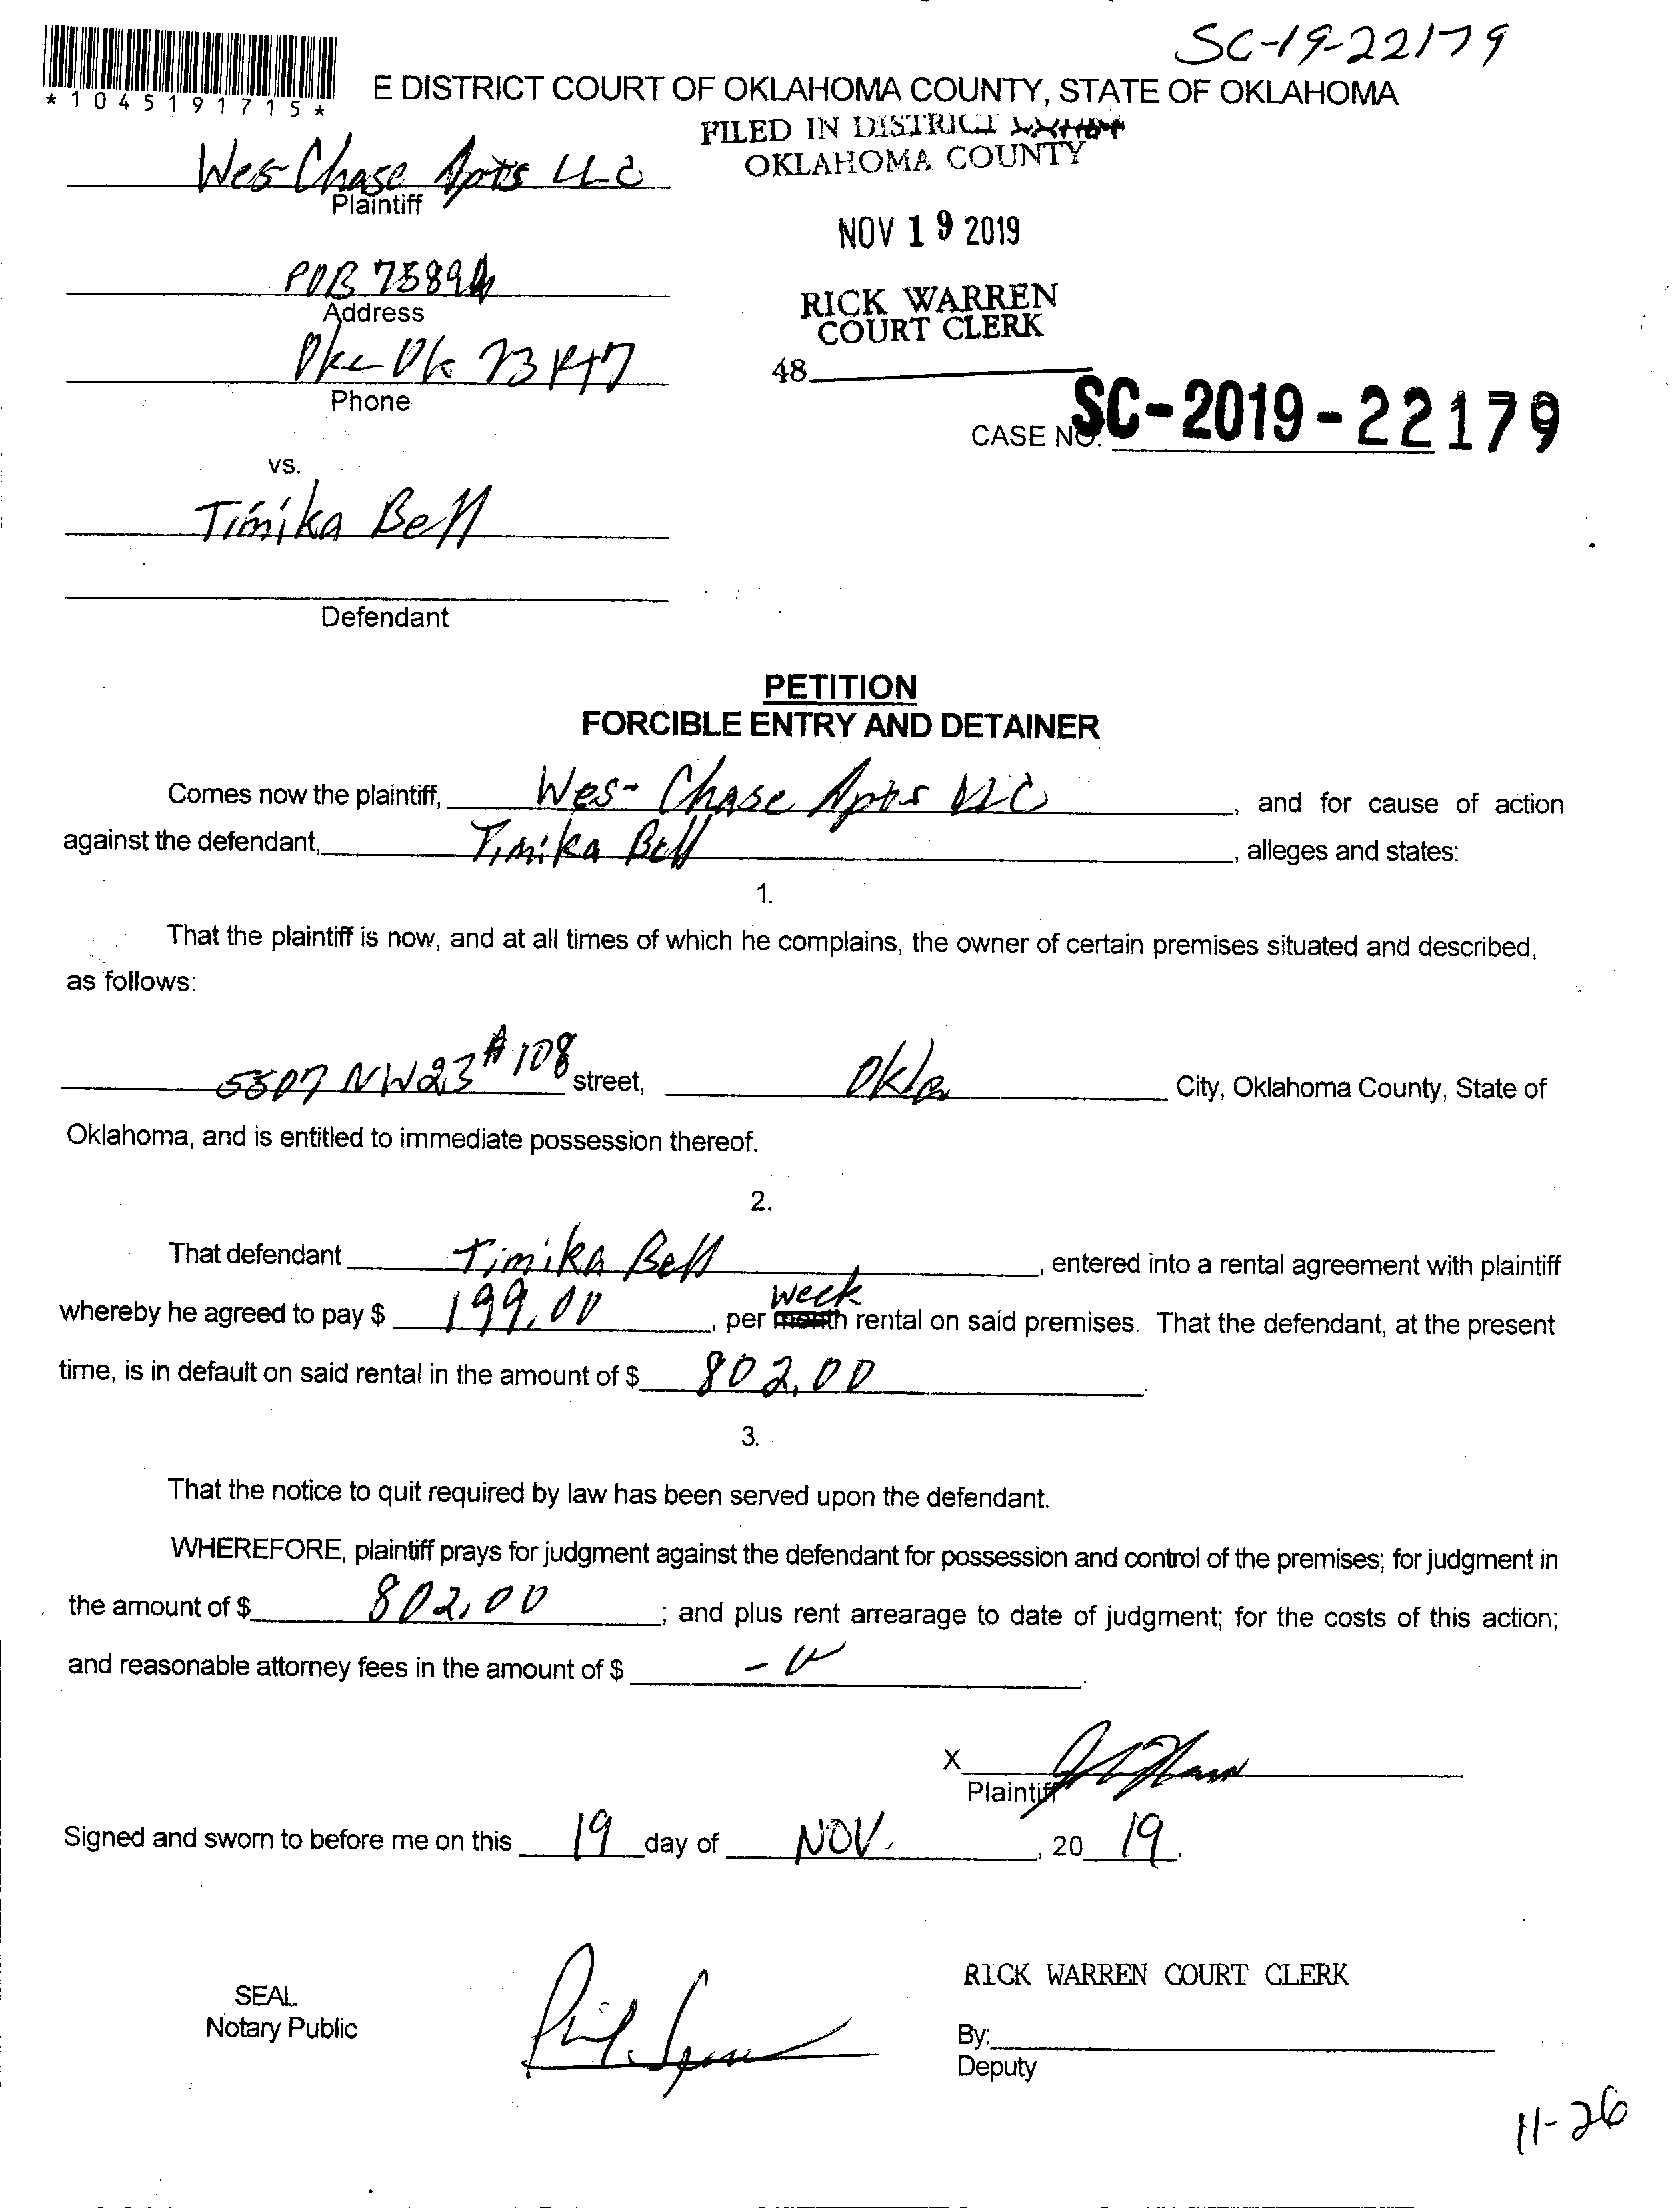 SC-19-22179
*1045191715*
E DISTRICT COURT OF OKLAHOMA COUNTY, STATE OF OKLAHOMA
FILED IN DISTRICT
OKLAHOMA COUNTY
Wes-Chase Apts LLC
Plaintiff
NOV 19 2019
POB 75894
Address
RICK WARREN
COURT CLERK
Okc Ok 73147
Phone
48
CASE NO. SC-2019-22179
vs.
Timika Bell
Defendant
PETITION
FORCIBLE ENTRY AND DETAINER
Comes now the plaintiff, Wes-Chase Apts LLC, and for cause of action
against the defendant, Timika Bell, alleges and states:
1.
That the plaintiff is now, and at all times of which he complains, the owner of certain premises situated and described,
as follows:
5507 NW23 #108 street, Okla City, Oklahoma County, State of
Oklahoma, and is entitled to immediate possession thereof.
2.
That defendant Timika Bell, entered into a rental agreement with plaintiff
whereby he agreed to pay $ 199.00, per month week rental on said premises. That the defendant, at the present
time, is in default on said rental in the amount of $ 802.00
3.
That the notice to quit required by law has been served upon the defendant.
WHEREFORE, plaintiff prays for judgment against the defendant for possession and control of the premises; for judgment in
the amount of $ 802.00; and plus rent arrearage to date of judgment; for the costs of this action;
and reasonable attorney fees in the amount of $
X
Plaintiff
Signed and sworn to before me on this 19 day of NOV., 20 19.
SEAL
Notary Public
RICK WARREN COURT CLERK
By:
Deputy
11-26